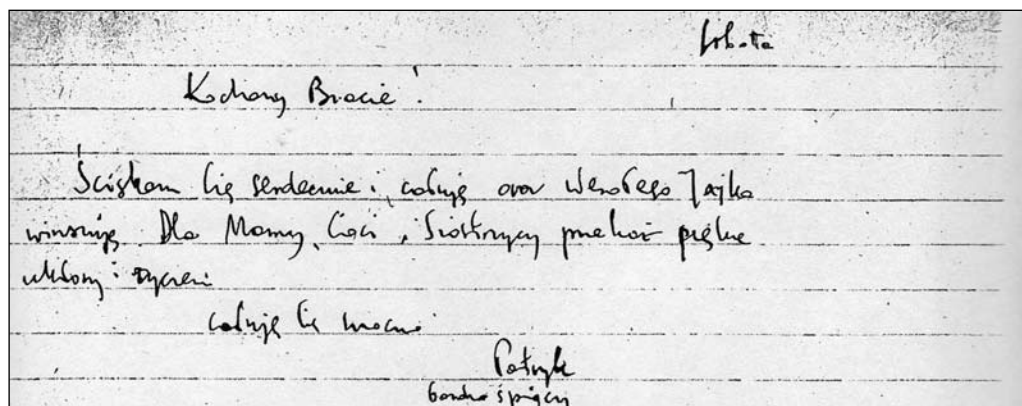 Sobota
Kochany Bracie!
Ściskam Cię serdecznie i całuję oraz Wesołego Jajka
winszuję. Dla Mamy, Cioci, Siostrzycy przekaż piękne
ukłony i życzeń
całuję Cię mocno
Patryk
bardzo śpiący